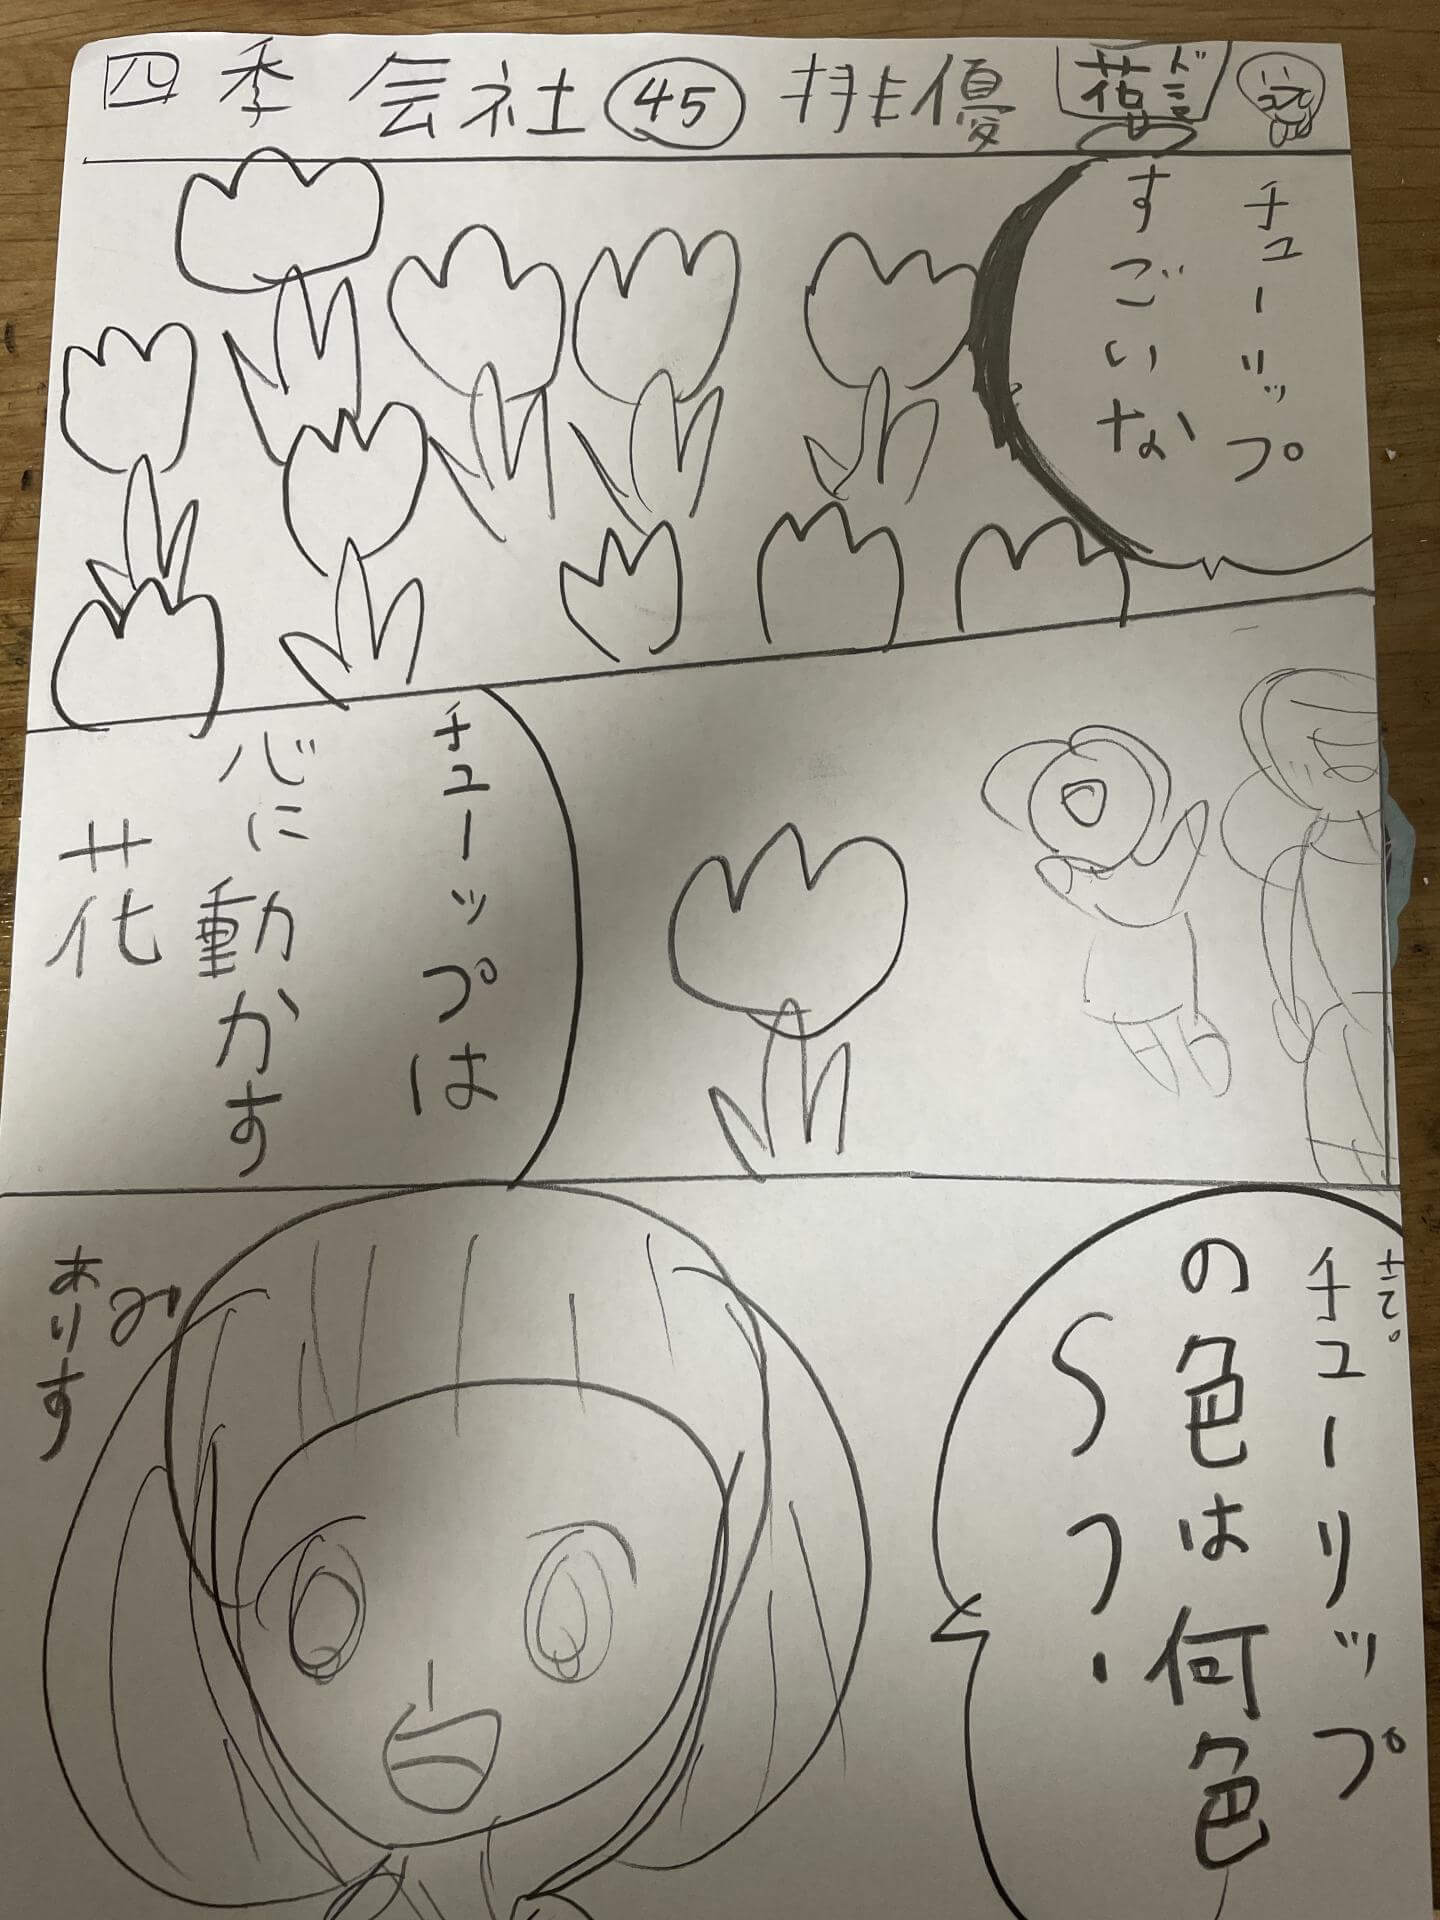 四季会社㊺俳優
花言
チューリップ
すごいな
チューリップは
心に動かす
花
さて。
チューリップ
の色は何色
〜?
み
ありす